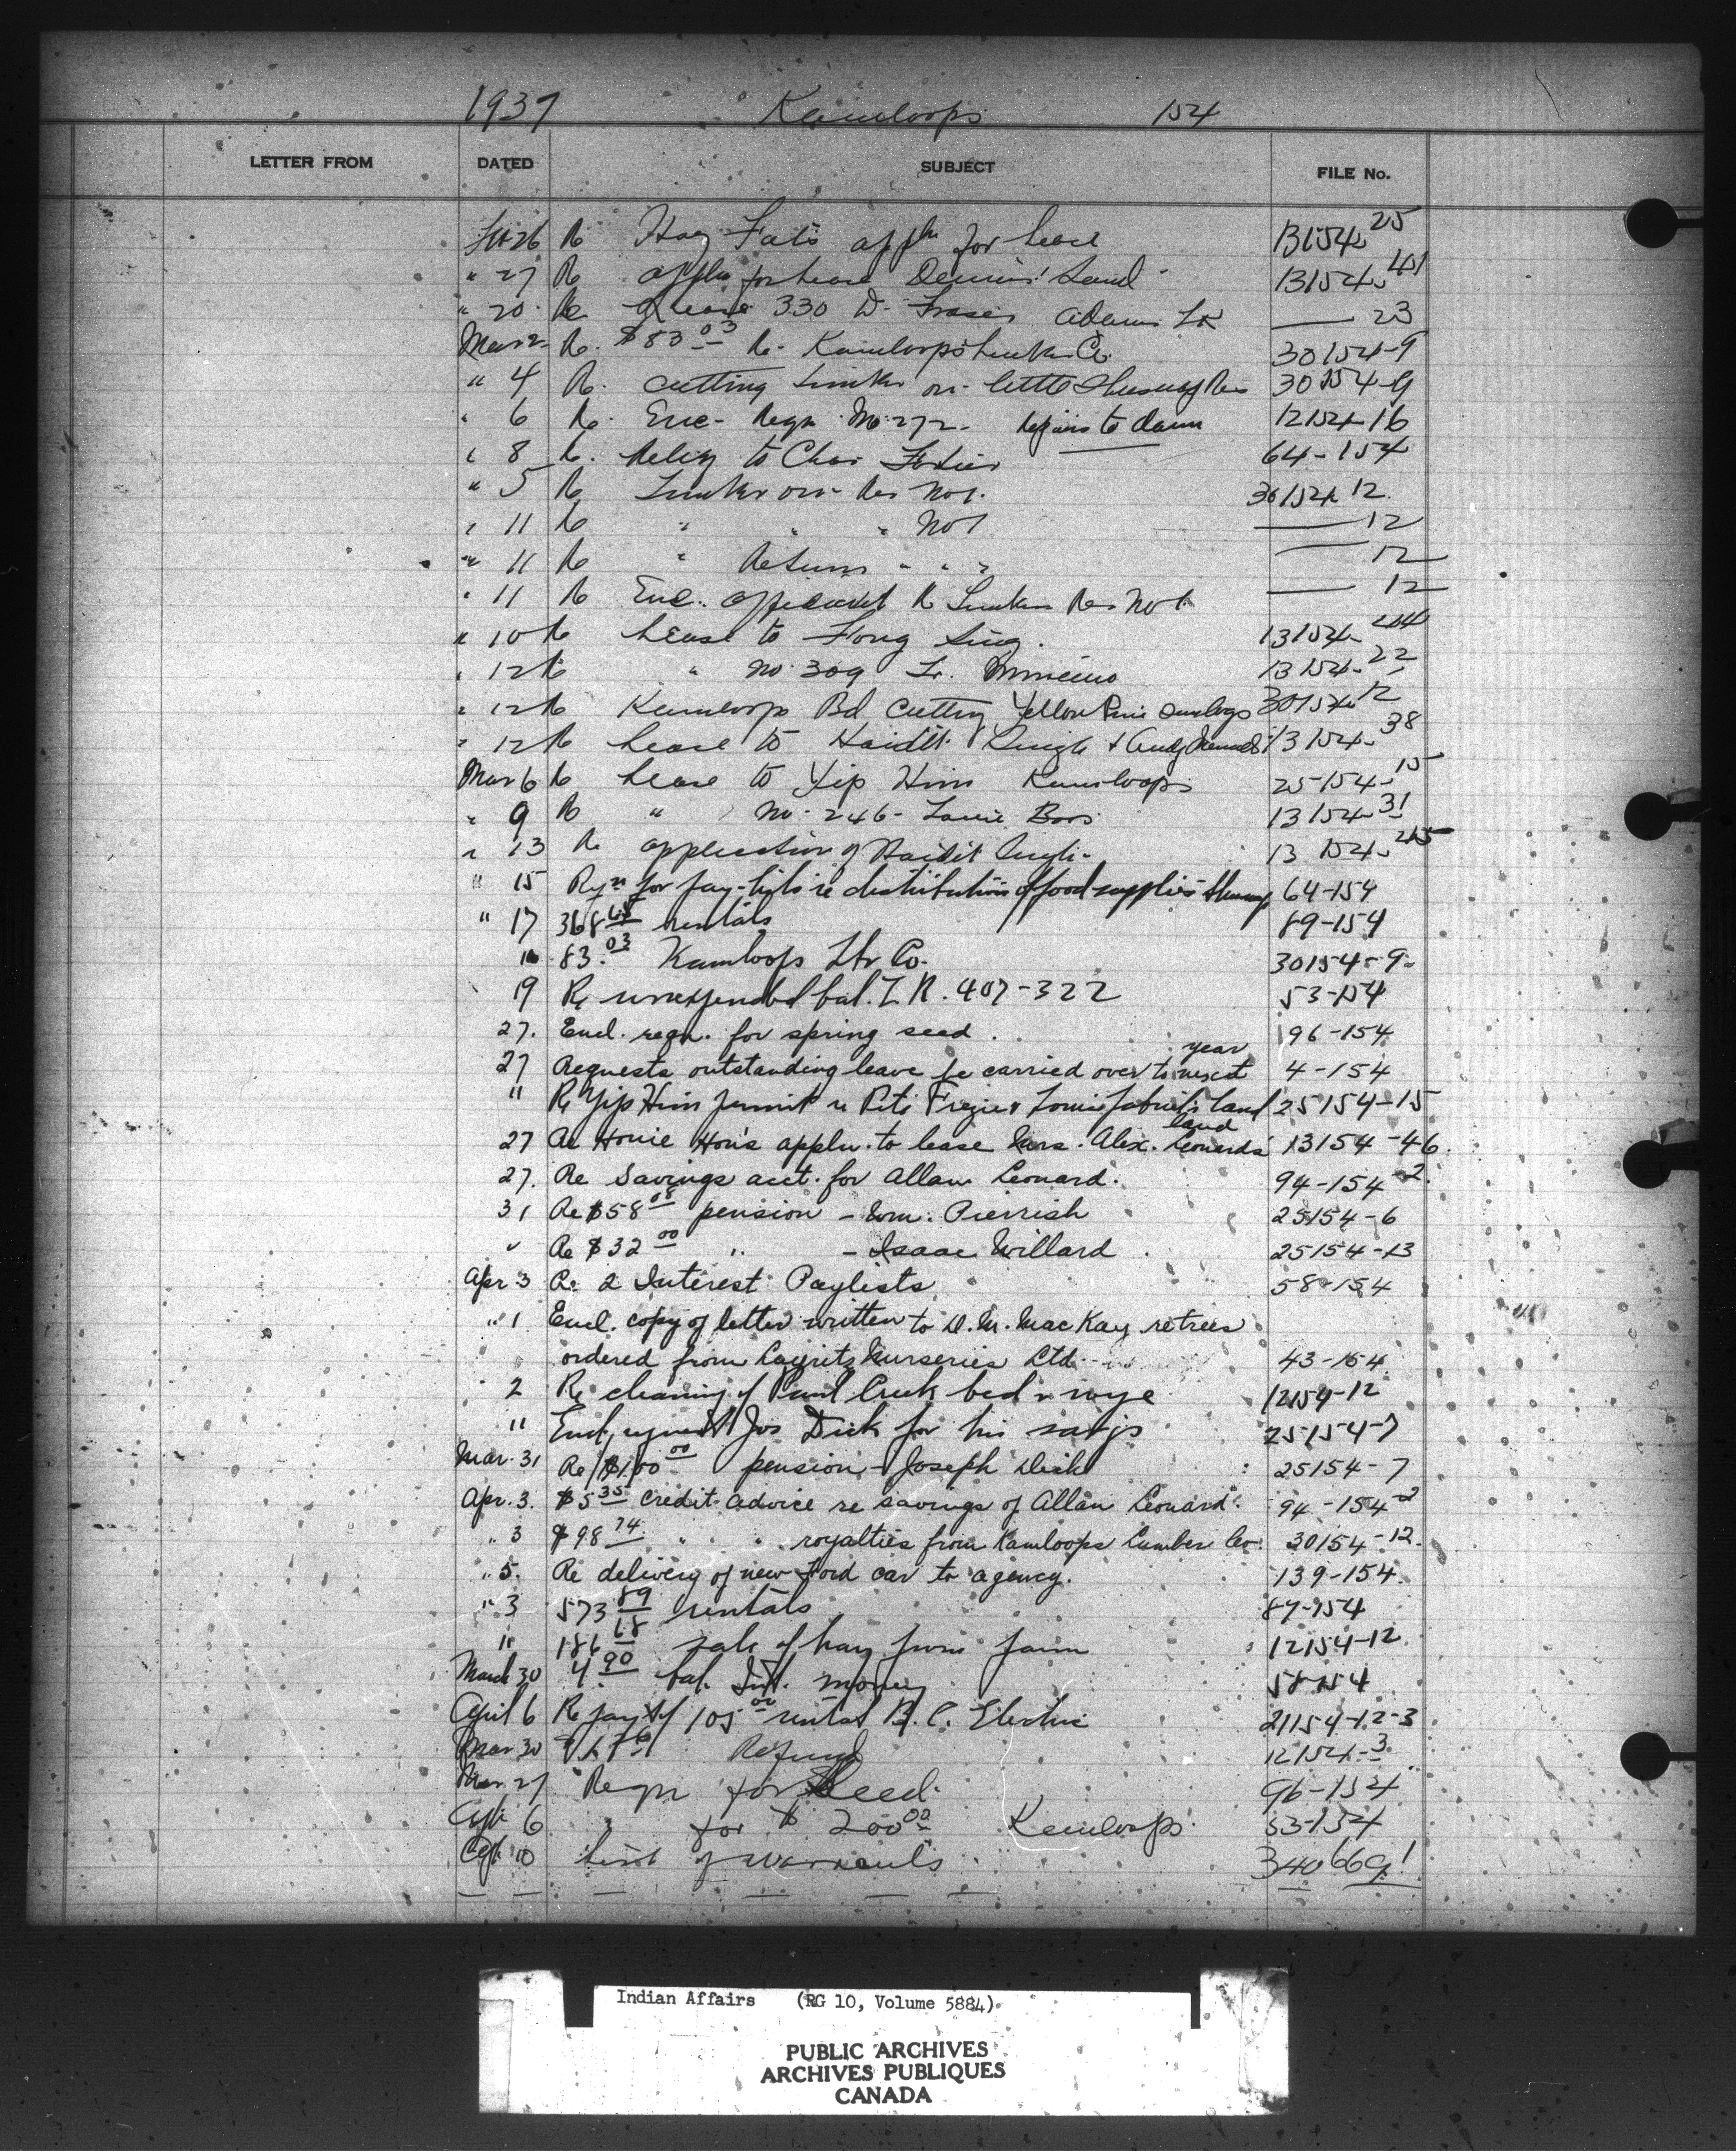 1937 Kamloops 154
LETTER FROM DATED SUBJECT FILE No.
Feb 26 Re Hoy Fat's appln for lease 13154-25
" 27 Re appln for lease Dennis' Land 13154-41
" 20 Re Lease 330 D. Fraser Adams Lk — 23
Mar 2 Re. $83.03 Re. Kamloops Lumber Co. 30154-9
" 4 Re. cutting timber on little Shuswap Res 30154-9
" 6 Re. Enc. Reqn No 272. Repairs to dam 12154-16
" 8 Re. Relief to Chas 64-154
" 5 Re Timber on Res No 1. 30154-12
" 11 Re " " " No 1 — 12
" 11 Re " Return " " " — 12
" 11 Re Enc. affidavit Re Timber Res No 1. — 12
" 10 Re Lease to Fong Sing. 13154-44
" 12 Re " No 309 13154-22
" 12 Re Kamloops Bd cutting Yellow Pine sawlogs 30154-12
" 12 Re Lease to Singh & 13154-38
Mar 6 Re Lease to Yip Him Kamloops 25154-15
" 9 Re " No. 246 - Louie Bros. 13154-31
" 13 Re application of Singh. 13154-45
" 15 for pay-lists re distribution of food supplies 64-154
" 17 368.65 rentals 89-154
" 83.03 Kamloops Lbr Co. 30154-9
19 Re unexpended bal. L.R. 407-322 53-154
27. Encl. reqn. for spring seed. 96-154
year
27 Requests outstanding leave be carried over to next 4-154
" Re Yip Him permit re Pete & Louie land 25154-15
land
27 Re Houie Hon's appln. to lease Mrs. Alex. Leonard's 13154-46
27. Re Savings acct. for Allan Leonard. 94-154-2
31 Re $58.08 pension - Wm. Pierrish 25154-6
" Re $32.00 " - Isaac Willard 25154-13
Apr. 3 Re 2 Interest Paylists 58-154
" 1 Encl. copy of letter written to D. M. MacKay re trees
ordered from Layritz Nurseries Ltd. 43-154
2 Re cleaning of Paul Creek bed 12154-12
" Encl. request Jos Dick for his savgs 25154-7
Mar. 31 Re $100.00 pension - Joseph Dick 25154-7
Apr. 3. $5.35 credit advice re savings of Allan Leonard. 94-154-2
" 3 $98.74 " " royalties from Kamloops Lumber Co. 30154-12.
" 5. Re delivery of new Ford car to agency. 139-154.
" 3 573.89 rentals 89-154
" 186.68 sale of hay from farm 12154-12
March 30 4.90 bal. Int. money 58-154
April 6 Re payt of 105.00 rental B.C. Electric 21154-12-3
Mar 30 Refund 12154-3
Mar. 27 Reqn for Seed. 96-154
Apl. 6 " for $200.00 Kamloops. 53-154
Apl. 10 List of warrants. 34066 91
Indian Affairs (RG 10, Volume 5884)
PUBLIC ARCHIVES
ARCHIVES PUBLIQUES
CANADA